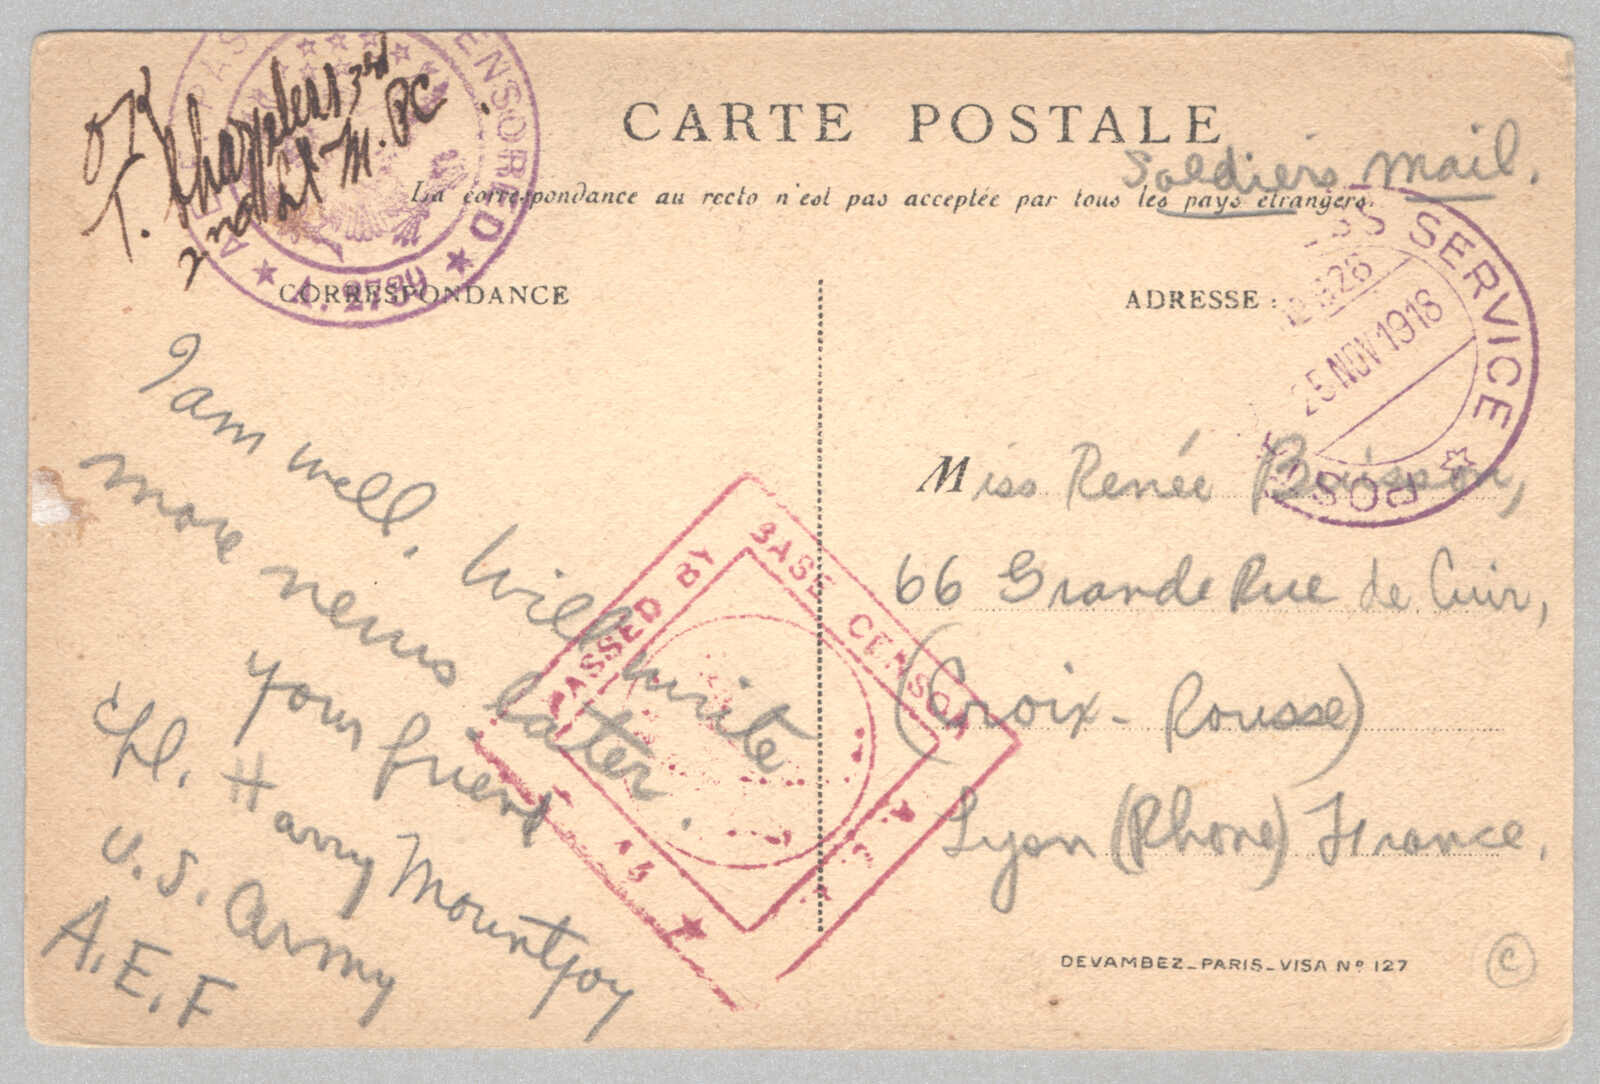 OK
T.
2nd Lt - M.P.C.
A.E.F. PASSED AS CENSORED
A. 2789
CARTE POSTALE
Soldiers Mail.
La correspondance au recto n'est pas acceptée par tous les pays étrangers.
CORRESPONDANCE
ADRESSE :
SERVICE
25 NOV 1918
POST
I am well. Will write
more news later.
your friend
Harry Mountjoy
U.S. Army
A.E.F
PASSED BY BASE CENSOR
Miss Renée Buisson,
66 Grande Rue de Cuir,
(Croix-Rousse)
Lyon (Rhone) France.
DEVAMBEZ_PARIS_VISA Nº 127
C